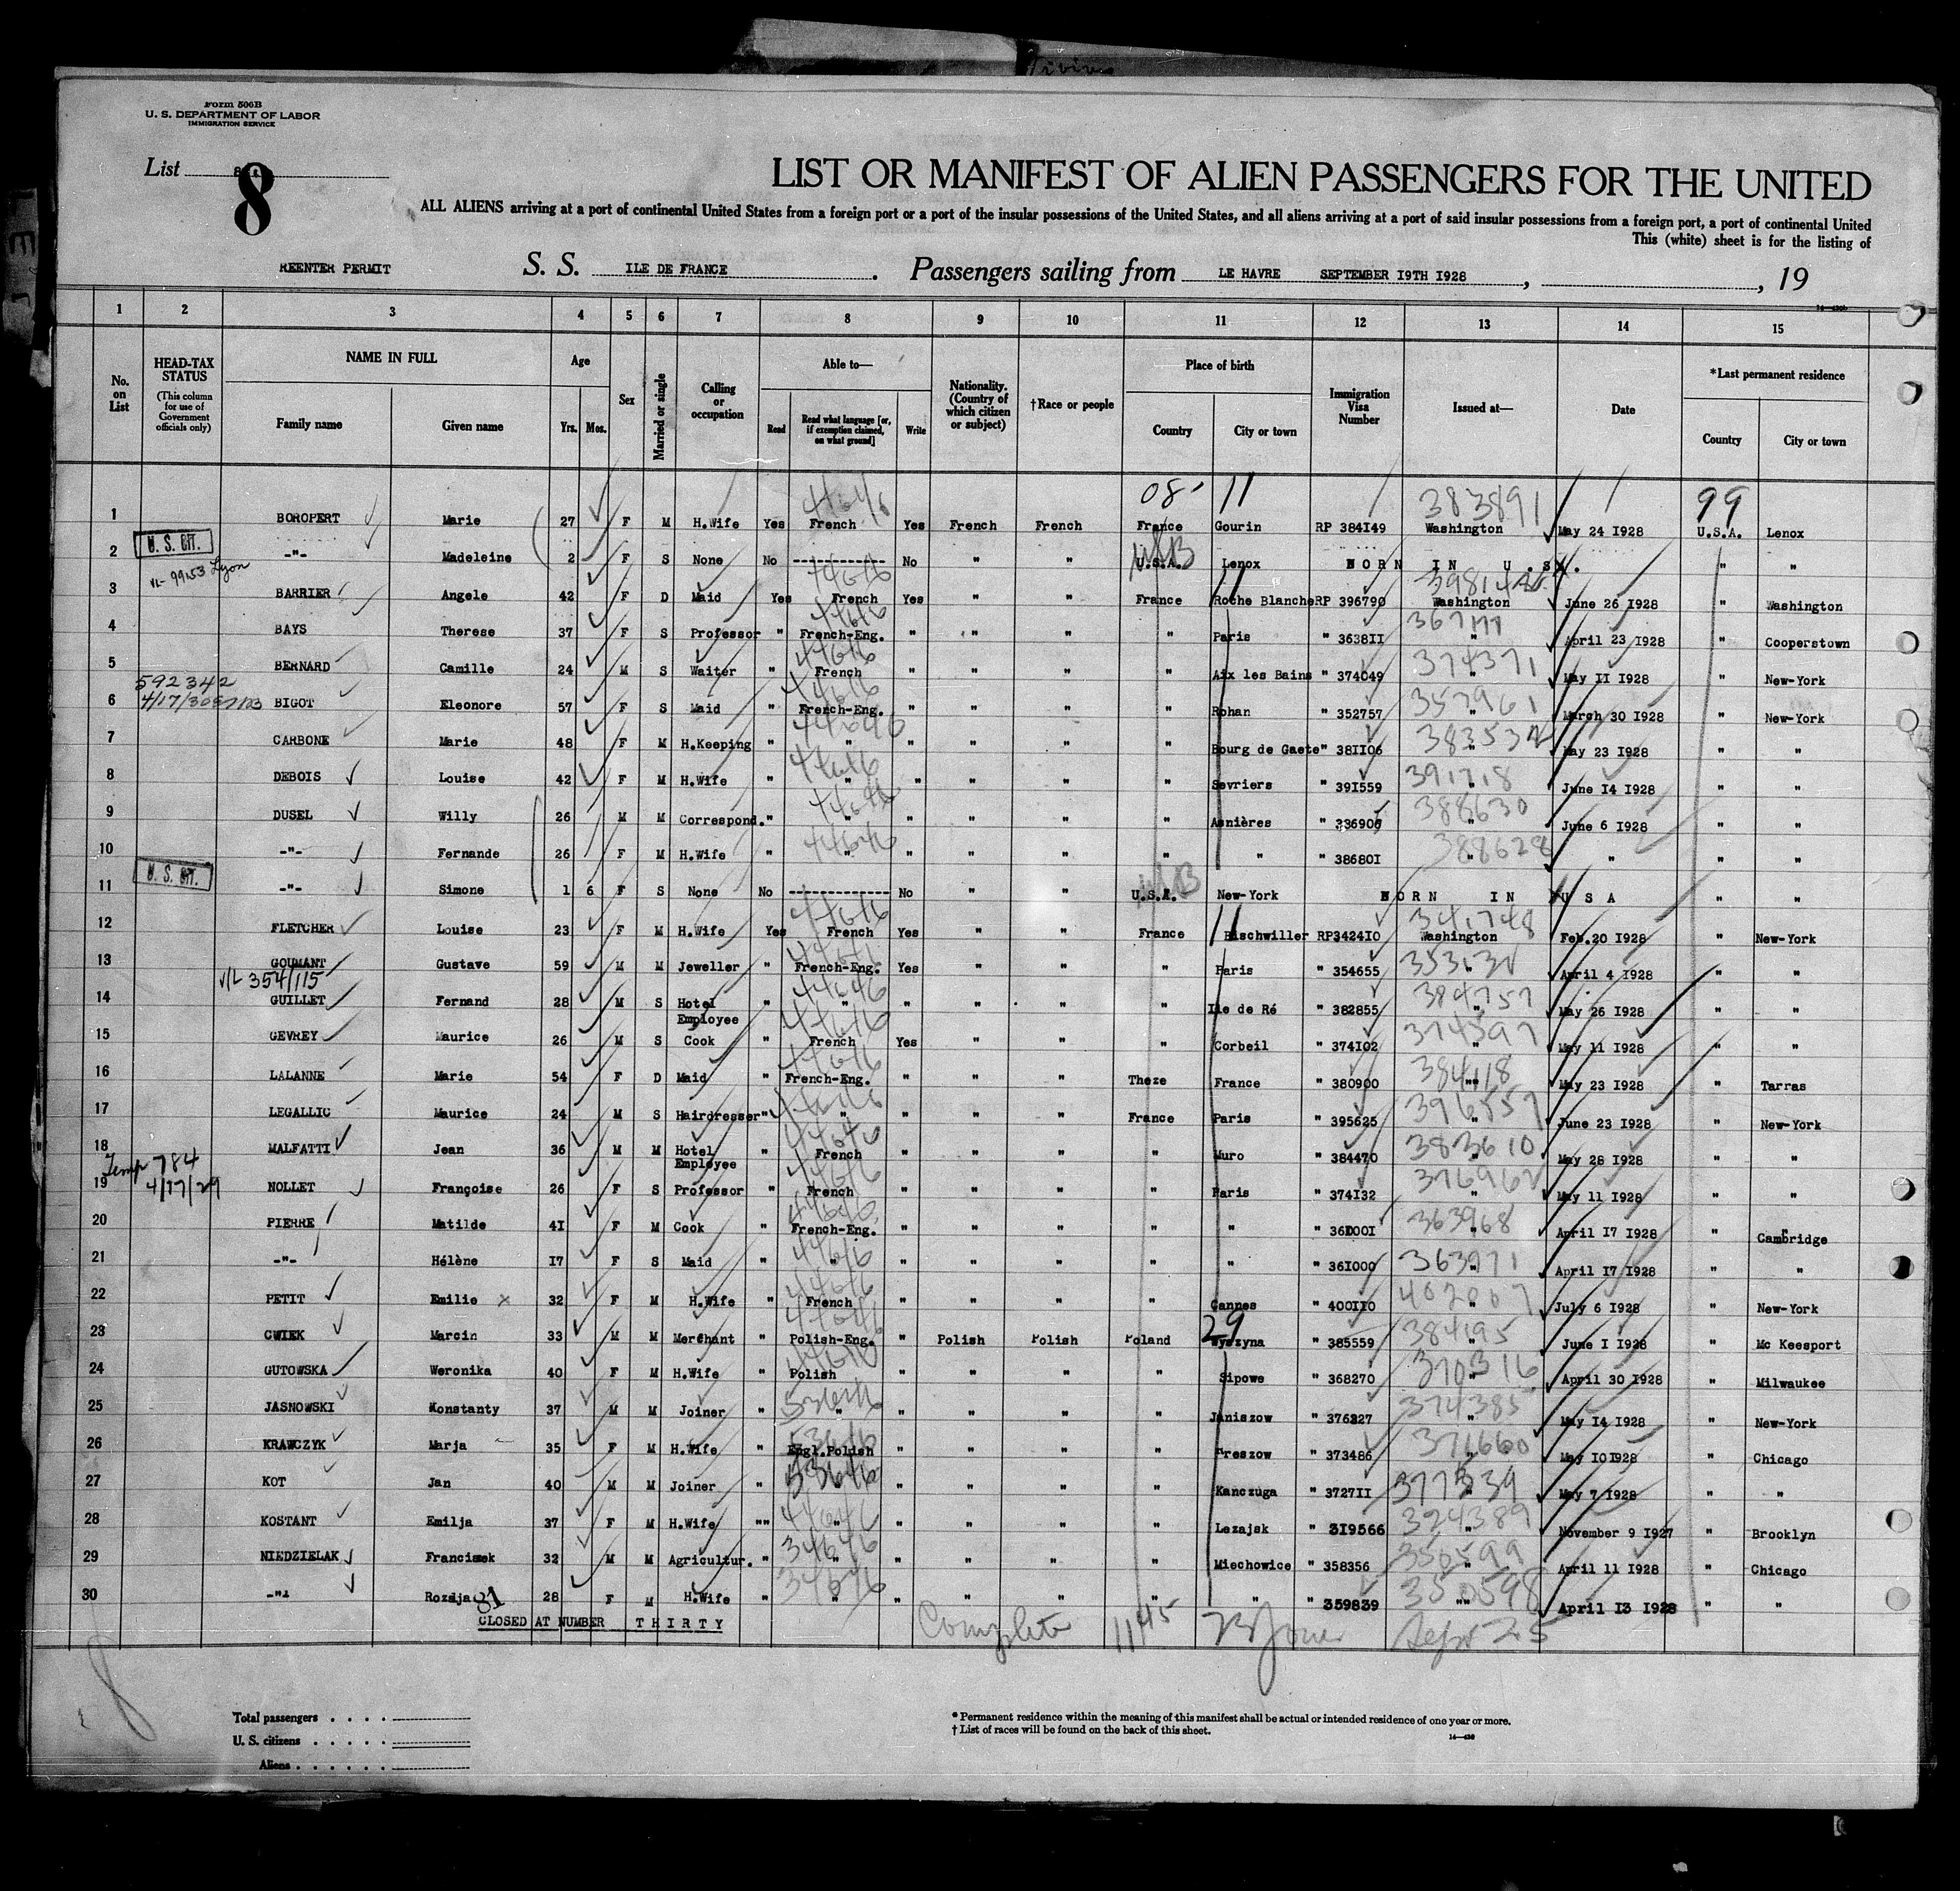 Form 506B
U. S. DEPARTMENT OF LABOR
IMMIGRATION SERVICE
List 8
8
LIST OR MANIFEST OF ALIEN PASSENGERS FOR THE UNITED
ALL ALIENS arriving at a port of continental United States from a foreign port or a port of the insular possessions of the United States, and all aliens arriving at a port of said insular possessions from a foreign port, a port of continental United
This (white) sheet is for the listing of
REENTER PERMIT S. S. ILE DE FRANCE . Passengers sailing from LE HAVRE SEPTEMBER I9TH I928 , , 19
1 2 3 4 5 6 7 8 9 10 11 12 13 14 15
No. on List
HEAD-TAX STATUS
(This column for use of Government officials only)
NAME IN FULL
Family name Given name
Age
Yrs. Mos.
Sex
Married or single
Calling or occupation
Able to—
Read Read what language [or, if exemption claimed, on what ground] Write
Nationality. (Country of which citizen or subject)
†Race or people
Place of birth
Country City or town
Immigration Visa Number
Issued at—
Date
*Last permanent residence
Country City or town
08 11 383891 99
1 BOROPERT Marie 27 F M H.Wife Yes French Yes French French France Gourin RP 384I49 Washington May 24 I928 U.S.A. Lenox
U. S. CIT.
2 -"- Madeleine 2 F S None No ------------- No " " U.S.A. Lenox BORN IN U.S. " "
VL-99153 Lyon
3 BARRIER Angele 42 F D Maid Yes French Yes " " France Roche Blanche RP 396790 Washington June 26 I928 " Washington
4 BAYS Therese 37 F S Professor " French-Eng. " " " " Paris " 3638II " April 23 I928 " Cooperstown
5 BERNARD Camille 24 M S Waiter " French " " " " Aix les Bains " 374049 374371 " May II I928 " New-York
592342
4/17/30
6 BIGOT Eleonore 57 F S Maid " French-Eng. " " " " Rohan " 352757 357961 " March 30 I928 " New-York
7 CARBONE Marie 48 F M H.Keeping " " " " " " Bourg de Gaete " 38II06 " May 23 I928 " "
8 DEBOIS Louise 42 F M H.Wife " " " " " " Sevriers " 39I559 391718 " June I4 I928 " "
9 DUSEL Willy 26 M M Correspond. " " " " " " Asnières " 336906 388630 " June 6 I928 " "
10 -"- Fernande 26 F M H.Wife " " " " " " " " 38680I 388628 " " " "
U. S. CIT.
11 -"- Simone 1 6 F S None No ------------- No " " U.S.A. New-York BORN IN U S A " "
12 FLETCHER Louise 23 F M H.Wife Yes French Yes " " France 11 Bischwiller RP3424I0 341748 Washington Feb.20 I928 " New-York
13 GOUMANT Gustave 59 M M Jeweller " French-Eng. Yes " " " Paris " 354655 " April 4 I928 " "
V/L 354/115
14 GUILLET Fernand 28 M S Hotel Employee " " " " " " Ile de Ré " 382855 384757 " May 26 I928 " "
15 GEVREY Maurice 26 M S Cook " French Yes " " " Corbeil " 374I02 374597 " May 11 I928 " "
16 LALANNE Marie 54 F D Maid " French-Eng. " " " Theze France " 380900 384118 " May 23 I928 " Tarras
17 LEGALLIC Maurice 24 M S Hairdresser " " " " " France Paris " 395625 396557 " June 23 I928 " New-York
18 MALFATTI Jean 36 M M Hotel Employee " French " " " " Muro " 384470 383610 " May 28 I928 " "
Temp 784
4/17/29
19 NOLLET Françoise 26 F S Professor " French " " " " Paris " 374I32 " May 11 I928 " "
20 PIERRE Matilde 4I F M Cook " French-Eng. " " " " " " 36I00I 363968 " April I7 I928 " Cambridge
21 -"- Hélène I7 F S Maid " " " " " " " " 36I000 363971 " April I7 I928 " "
22 PETIT Emilie x 32 F M H.Wife " French " " " " Cannes " 400II0 " July 6 I928 " New-York
23 CWIEK Marcin 33 M M Merchant " Polish-Eng. " Polish Polish Poland 29 Wyszyna " 385559 384195 " June I I928 " Mc Keesport
24 GUTOWSKA Weronika 40 F M H.Wife " Polish " " " " Sipowe " 368270 370316 " April 30 I928 " Milwaukee
25 JASNOWSKI Konstanty 37 M M Joiner " " " " " " Janiszow " 376227 374385 " May I4 I928 " New-York
26 KRAWCZYK Marja 35 F M H.Wife " Engl.Polish " " " " " 373486 371660 " May I0 I928 " Chicago
27 KOT Jan 40 M M Joiner " " " " " Kanczuga " 3727II May 7 I928 " "
28 KOSTANT Emilja 37 F M H.Wife "" " " " " " Lezajsk " 3I9566 324389 " November 9 I927 " Brooklyn
29 NIEDZIELAK Franciszek 32 M M Agricultur. " " " " " " Miechowice " 358356 350599 " April 11 I928 " Chicago
30 -"- Rozdja 28 F M H.Wife " " " " " " " " 359839 350598 "" April I3 I928 " "
81
CLOSED AT NUMBER THIRTY
Complete 1145 Sept 25
Total passengers . . . .
U. S. citizens . . . . .
Aliens . . . . . .
* Permanent residence within the meaning of this manifest shall be actual or intended residence of one year or more.
† List of races will be found on the back of this sheet.
14—430